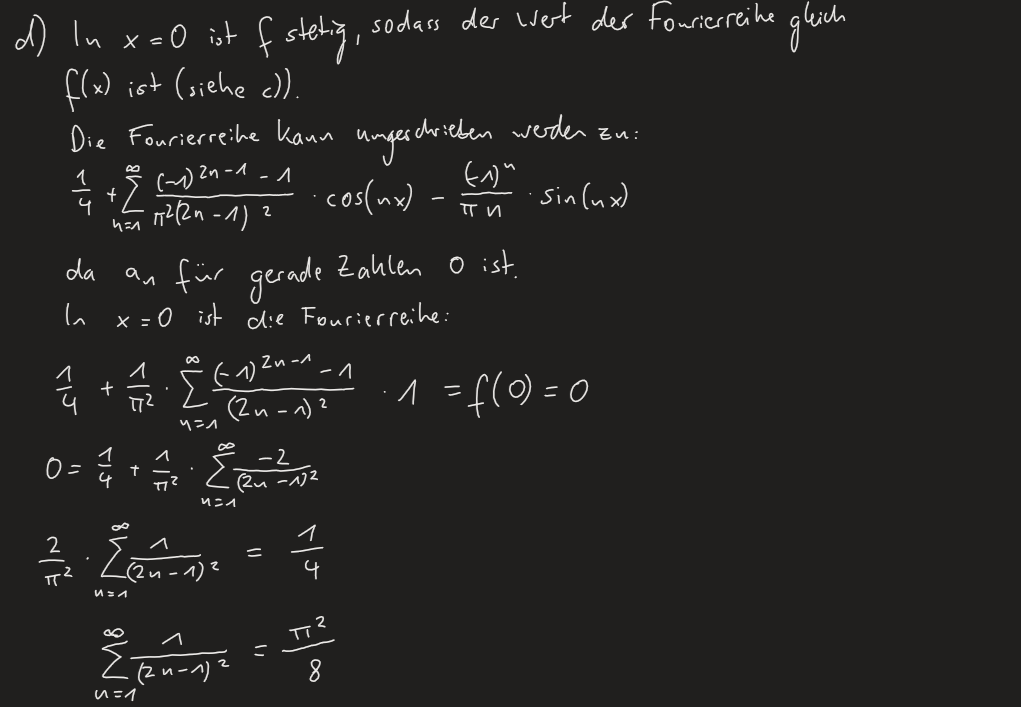 d) In x = 0 ist f stetig, sodass der Wert der Fourierreihe gleich
f(x) ist (siehe c)).
Die Fourierreihe kann umgeschrieben werden zu:
1/4 + ∑_{n=1}^{∞} ((-1)^{2n-1} - 1)/(π²(2n-1)²) · cos(nx) - (-1)^n/(πn) · sin(nx)
da a_n für gerade Zahlen 0 ist.
In x = 0 ist die Fourierreihe:
1/4 + 1/π² · ∑_{n=1}^{∞} ((-1)^{2n-1} - 1)/((2n-1)²) · 1 = f(0) = 0
0 = 1/4 + 1/π² · ∑_{n=1}^{∞} (-2)/((2n-1)²)
2/π² · ∑_{n=1}^{∞} 1/((2n-1)²) = 1/4
∑_{n=1}^{∞} 1/((2n-1)²) = π²/8